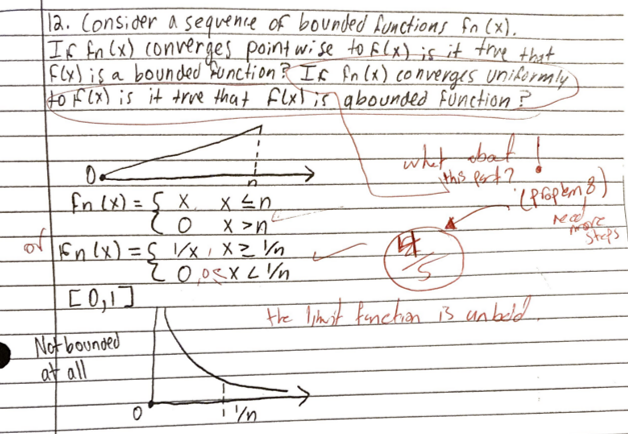 12. Consider a sequence of bounded functions fn(x).
If fn(x) converges pointwise to f(x) is it true that
f(x) is a bounded function? If fn(x) converges uniformly
to f(x) is it true that f(x) is a bounded function?
what about
this part? !
0
n
(problem 8)
need
more
steps
fn(x) = { x, x ≤ n
{ 0 x > n
or fn(x) = { 1/x, x ≥ 1/n
{ 0, 0≤x < 1/n
4/5
[0,1]
the limit function is unbdd.
Not bounded
at all
0
1/n